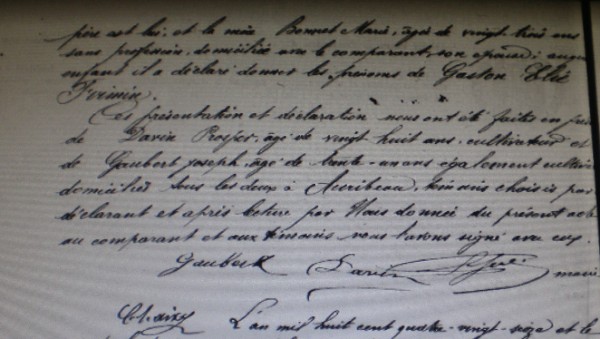 père est lui, et la mère Bonnet Marie, âgée de vingt trois ans
sans profession, domiciliée avec le comparant, son épouse; auquel
enfant il a déclaré donner les prénoms de Gaston Elie
Firmin.
Ces présentation et déclaration nous ont été faites en pré
de Davin Prosper, âgé de vingt huit ans, cultivateur et
de Gaubert Joseph, âgé de trente-un ans également cultiva
domiciliés tous les deux à Auribeau, témoins choisis par
déclarant et après lecture par Nous donnée du présent acte
au comparant et aux témoins nous l'avons signé avec eux.
Gaubert Davin maire
L'an mil huit cent quatre-vingt-seize et le